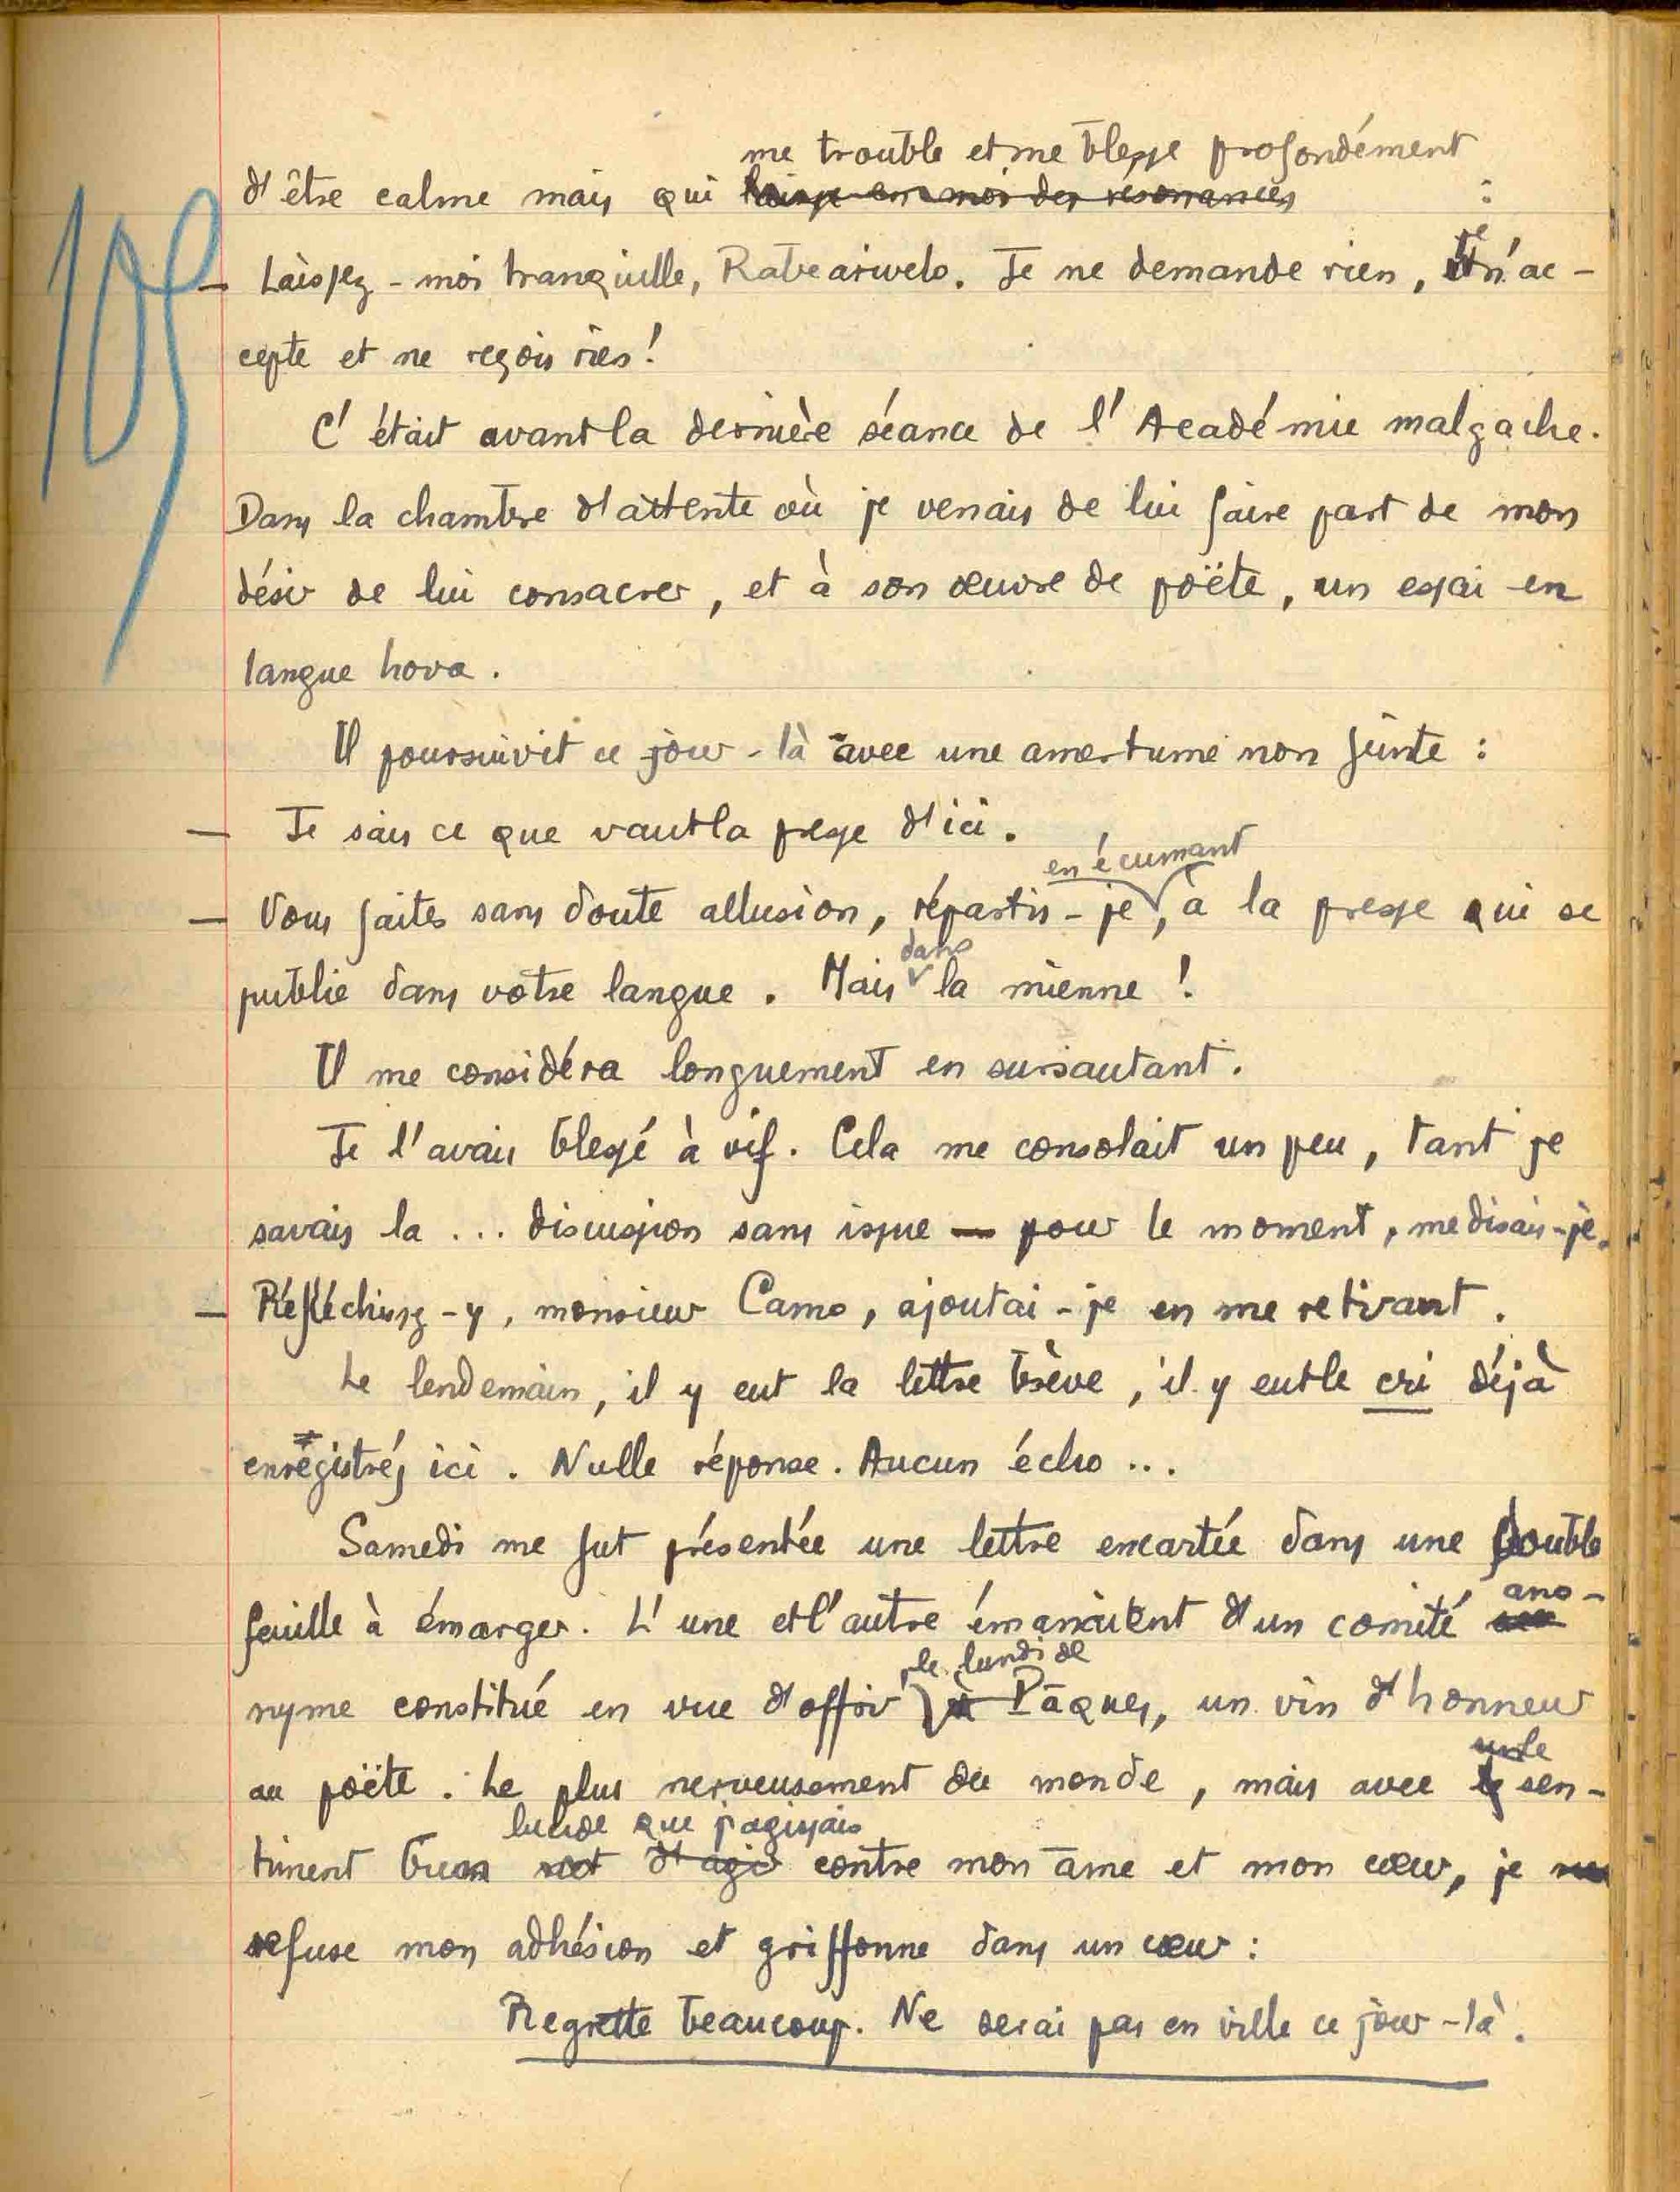 105
me trouble et me blesse profondément
d'être calme mais qui laisse en moi des résonances :
— Laissez-moi tranquille, Rabearivelo. Je ne demande rien, je n'ac-
cepte et ne reçois rien !
C'était avant la dernière séance de l'Académie malgache.
Dans la chambre d'attente où je venais de lui faire part de mon
désir de lui consacrer, et à son œuvre de poëte, un essai en
langue hova.
Il poursuivit ce jour-là avec une amertume non feinte :
— Je sais ce que vaut la presse d'ici.
en écumant
— Vous faites sans doute allusion, répartis-je, à la presse qui se
dans
publie dans votre langue. Mais la mienne !
Il me considéra longuement en sursautant.
Je l'avais blessé à vif. Cela me consolait un peu, tant je
savais la ... discussion sans issue — pour le moment, me disais-je.
— Réfléchissez-y, monsieur Camo, ajoutai-je en me retirant.
Le lendemain, il y eut la lettre brève, il y eut le cri déjà
enregistrés ici. Nulle réponse. Aucun écho ...
Samedi me fut présentée une lettre encartée dans une double
feuille à émarger. L'une et l'autre émanaient d'un comité ano-
le lundi de
nyme constitué en vue d'offrir à Pâques, un vin d'honneur
au poëte. Le plus nerveusement du monde, mais avec le sen-
lucide que j'agissais
timent d'agir contre mon âme et mon cœur, je
refuse mon adhésion et griffonne dans un cœur :
Regrette beaucoup. Ne serai pas en ville ce jour-là.